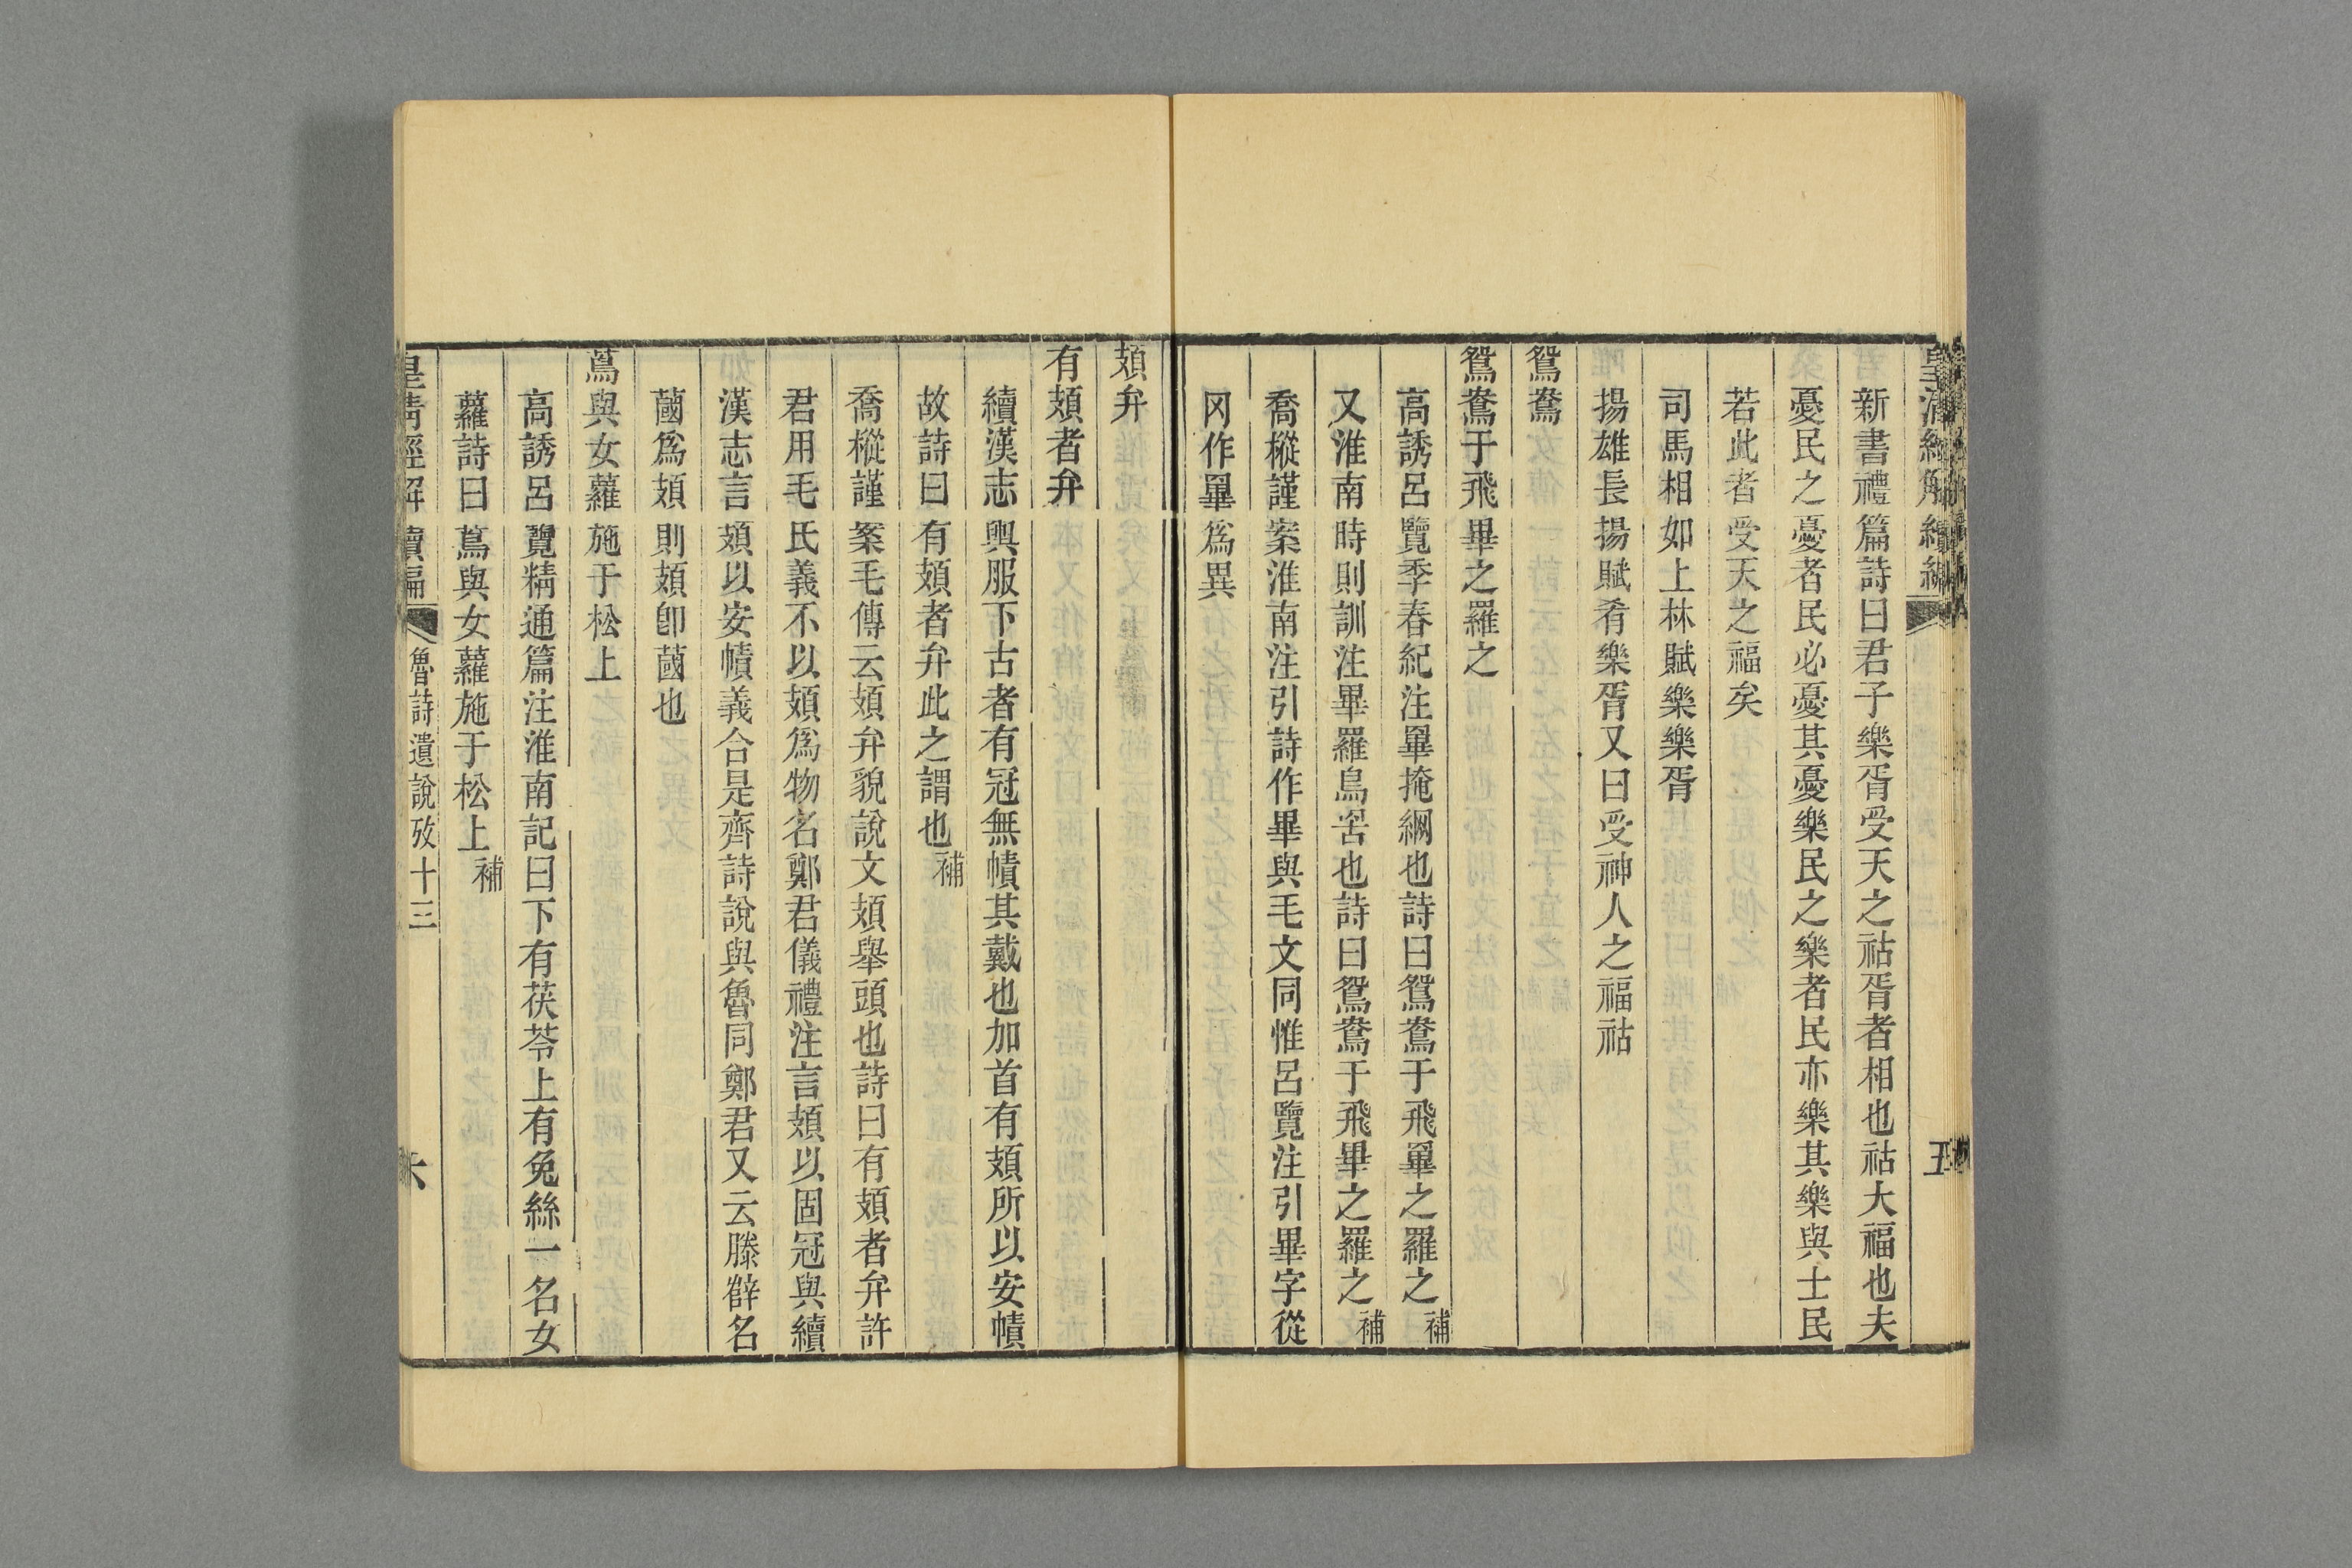 皇清經解續編
五
新書禮篇詩曰君子樂胥受天之祜胥者相也祜大福也夫
憂民之憂者民必憂其憂樂民之樂者民亦樂其樂與士民
若此者受天之福矣
司馬相如上林賦樂樂胥
揚雄長揚賦肴樂胥又曰受神人之福祜
鴛鴦
鴛鴦于飛畢之羅之
高誘呂覽季春紀注罼掩網也詩曰鴛鴦于飛罼之羅之補
又淮南時則訓注畢羅鳥罟也詩曰鴛鴦于飛畢之羅之補
喬樅謹案淮南注引詩作畢與毛文同惟呂覽注引畢字從
冈作罼爲異
頍弁
有頍者弁
續漢志輿服下古者有冠無幘其戴也加首有頍所以安幘
故詩曰有頍者弁此之謂也補
喬樅謹案毛傳云頍弁貌說文頍舉頭也詩曰有頍者弁許
君用毛氏義不以頍爲物名鄭君儀禮注言頍以固冠與續
漢志言頍以安幘義合是齊詩說與魯同鄭君又云滕薛名
蔮爲頍則頍卽蔮也
蔦與女蘿施于松上
高誘呂覽精通篇注淮南記曰下有茯苓上有兔絲一名女
蘿詩曰蔦與女蘿施于松上補
皇清經解續編
魯詩遺說攷十三
六